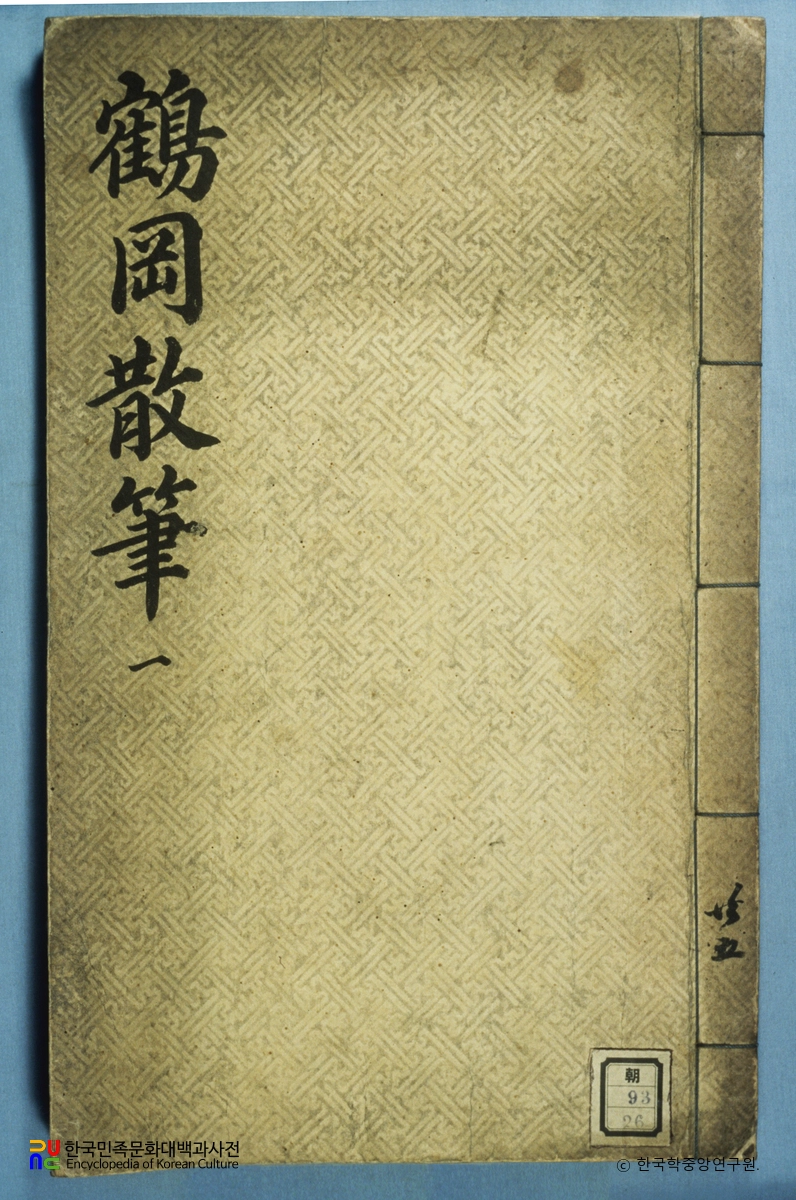 鶴岡散筆
一
共五
朝
93
26
한국민족문화대백과사전
Encyclopedia of Korean Culture
© 한국학중앙연구원.